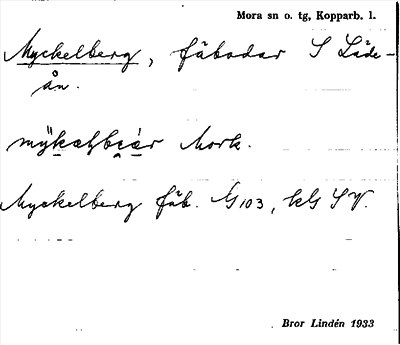 Mora sn o. tg, Kopparb. l.
Myckelberg, fäbodar S Låde-
ån.
Mork.
Myckelberg fäb. G103, kG SV.
Bror Lindén 1933